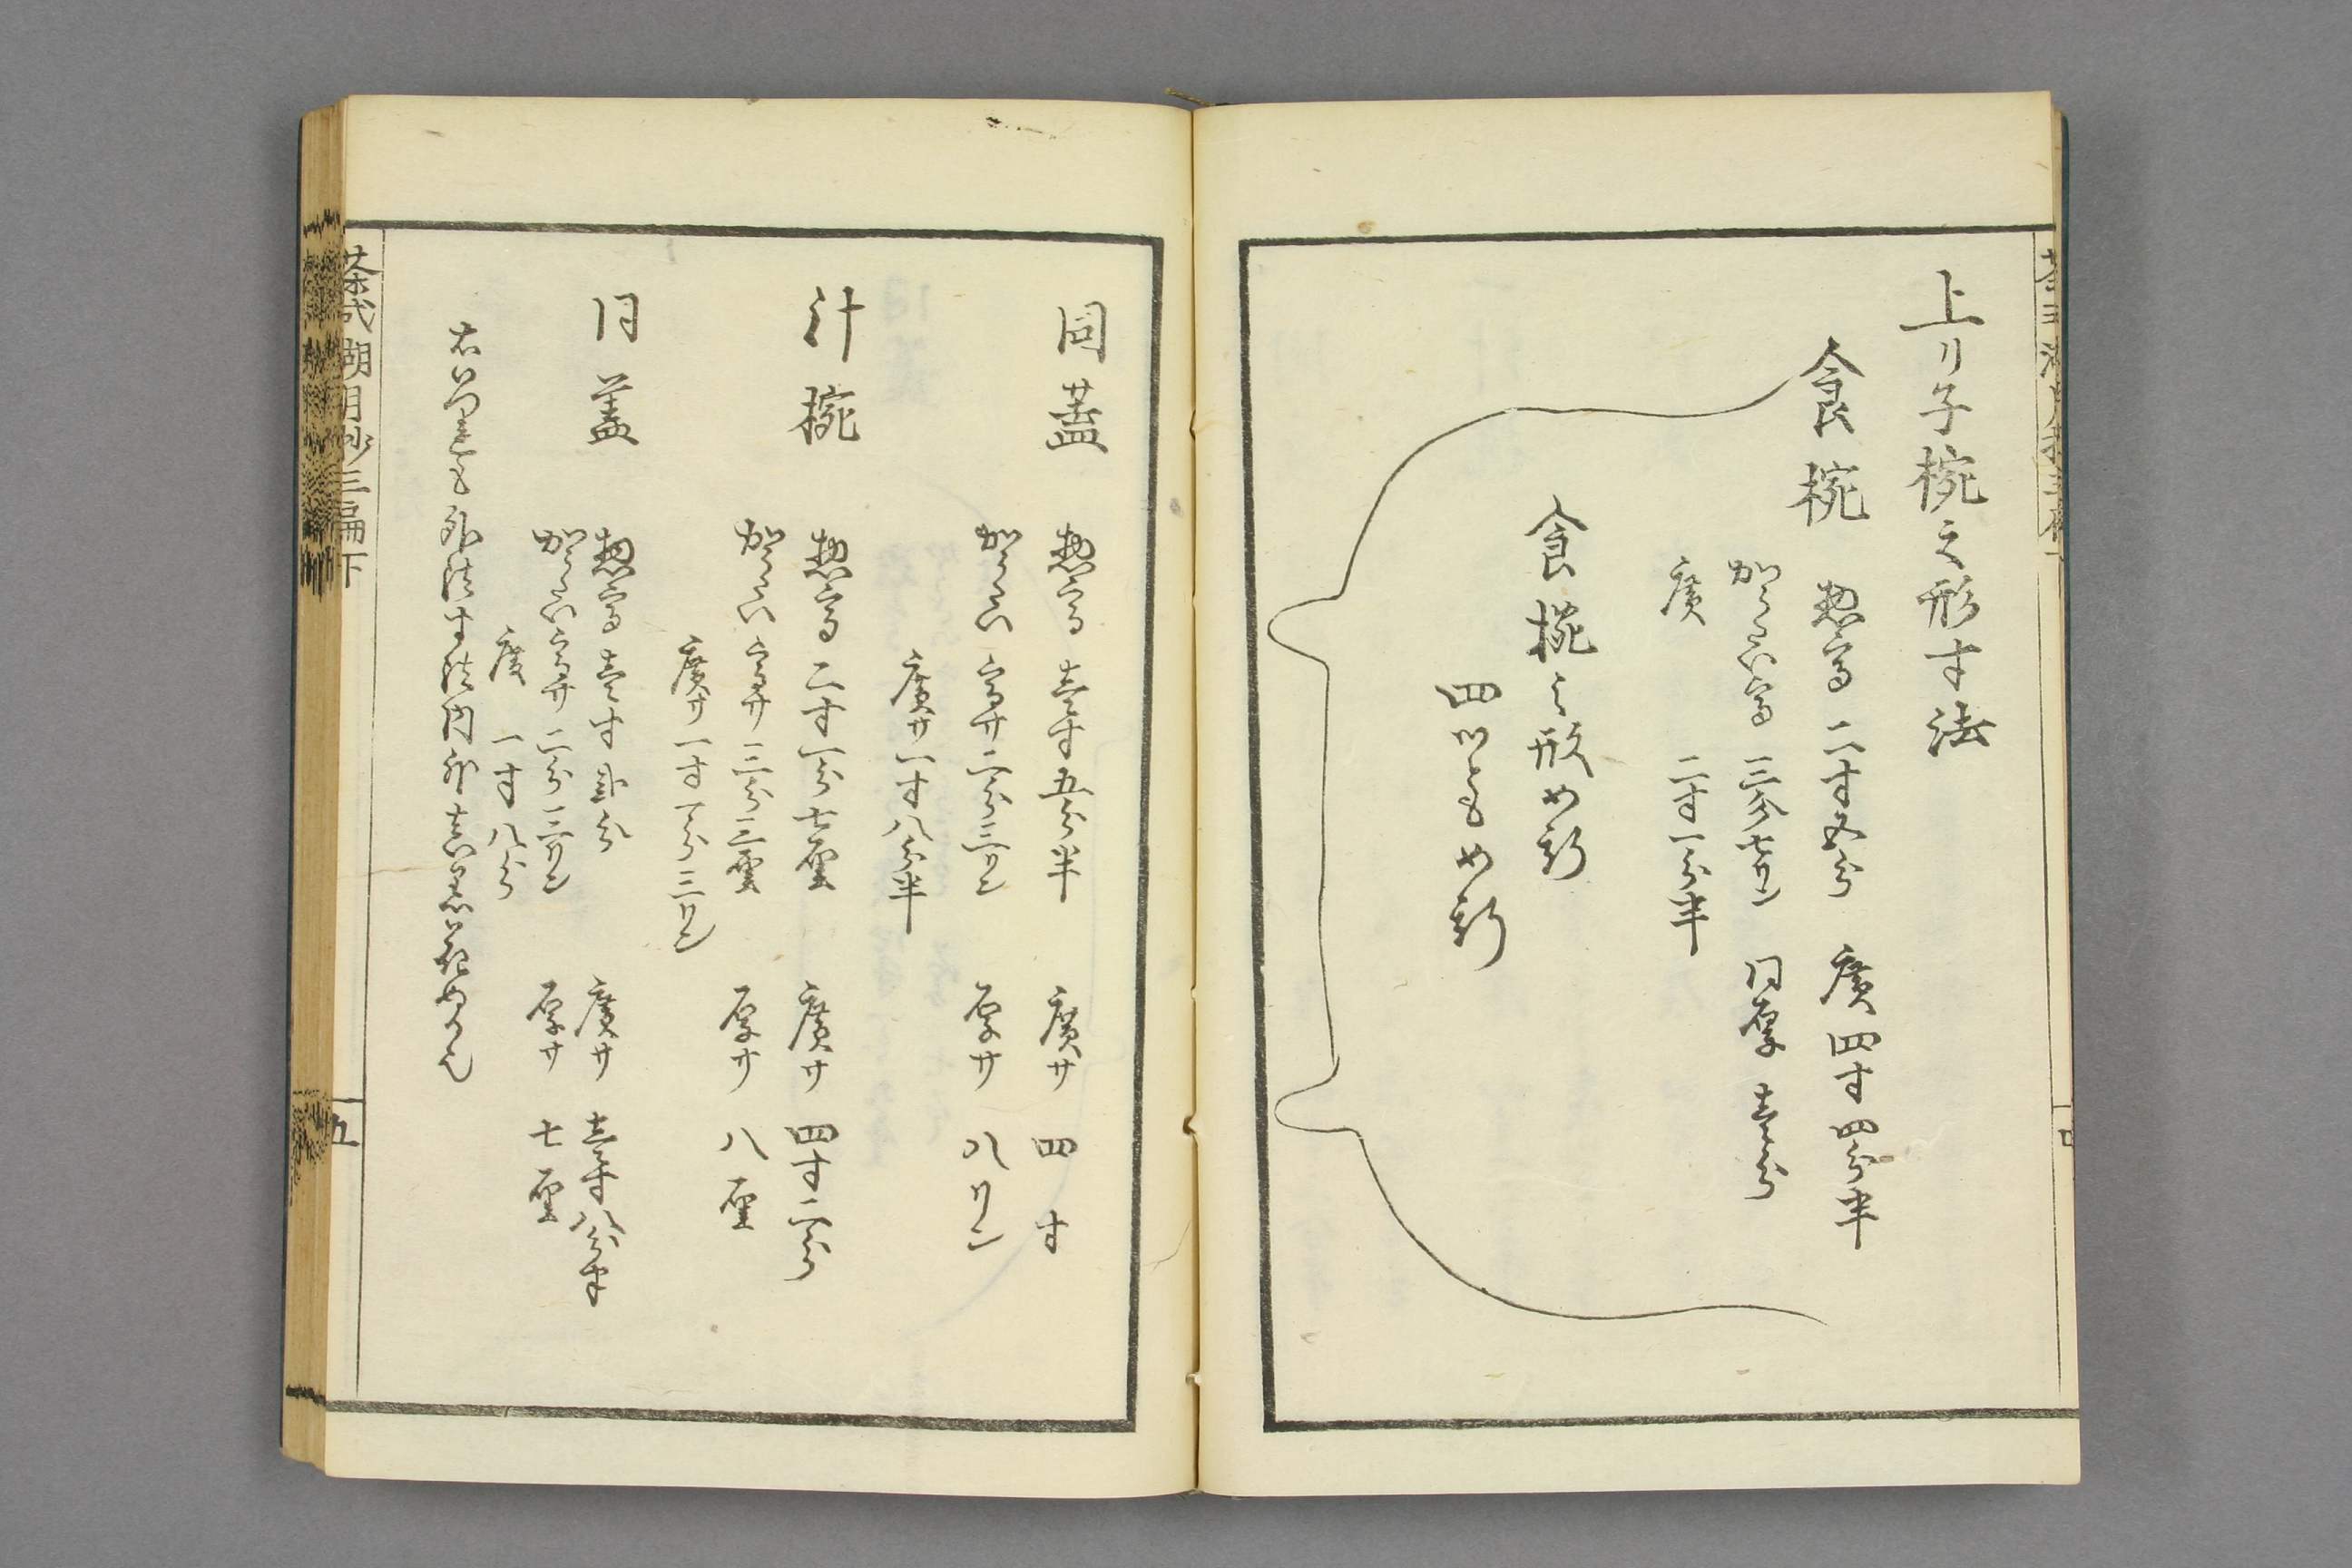 上リ子椀之形寸法
食椀
惣高 二寸五分 廣 四寸四分半
かうたい高 三分七リン 同厚 壱分
廣 二寸一分半
食椀之形如斯
四ツとも如斯
同蓋
惣高 壱寸五分半 廣サ 四寸
かうたい 高サ二分三リン 厚サ 八リン
廣サ一寸八分半
汁椀
惣高 二寸一分七厘 廣サ 四寸二分
かうたい 高サ 三分三厘 厚サ 八厘
廣サ一寸一分三リン
同蓋
惣高 壱寸 分 廣サ 八分半
かうたい高サ 二分三リン 厚サ 七厘
度 一寸八分
右いつれも 寸法内外
茶式湖月抄三編下
五